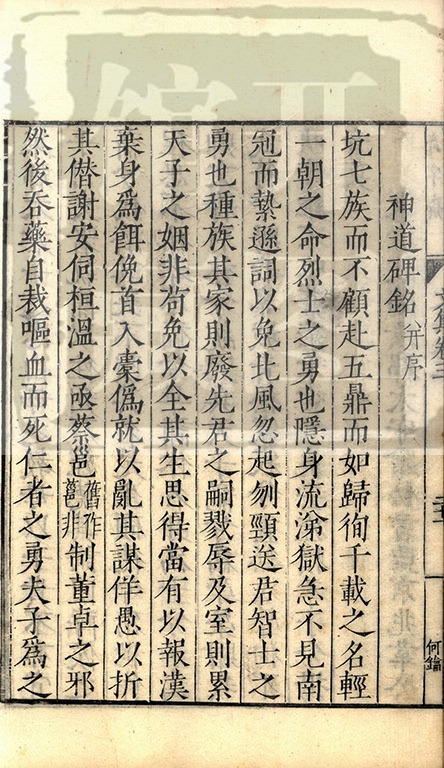 神道碑銘并序
坑七族而不顧赴五鼎而如歸徇千載之名輕
一朝之命烈士之勇也隱身流淚獄急不見南
冠而縶遜詞以免北風忽起刎頸送君智士之
勇也種族其家則廢先君之嗣戮辱及室則累
天子之姻非苟免以全其生思得當有以報漢
棄身爲餌俛首入橐僞就以亂其謀佯愚以折
其僣謝安伺桓溫之亟蔡邕舊作蓖非制董卓之邪
然後吞藥自裁嘔血而死仁者之勇夫子爲之
何鏥